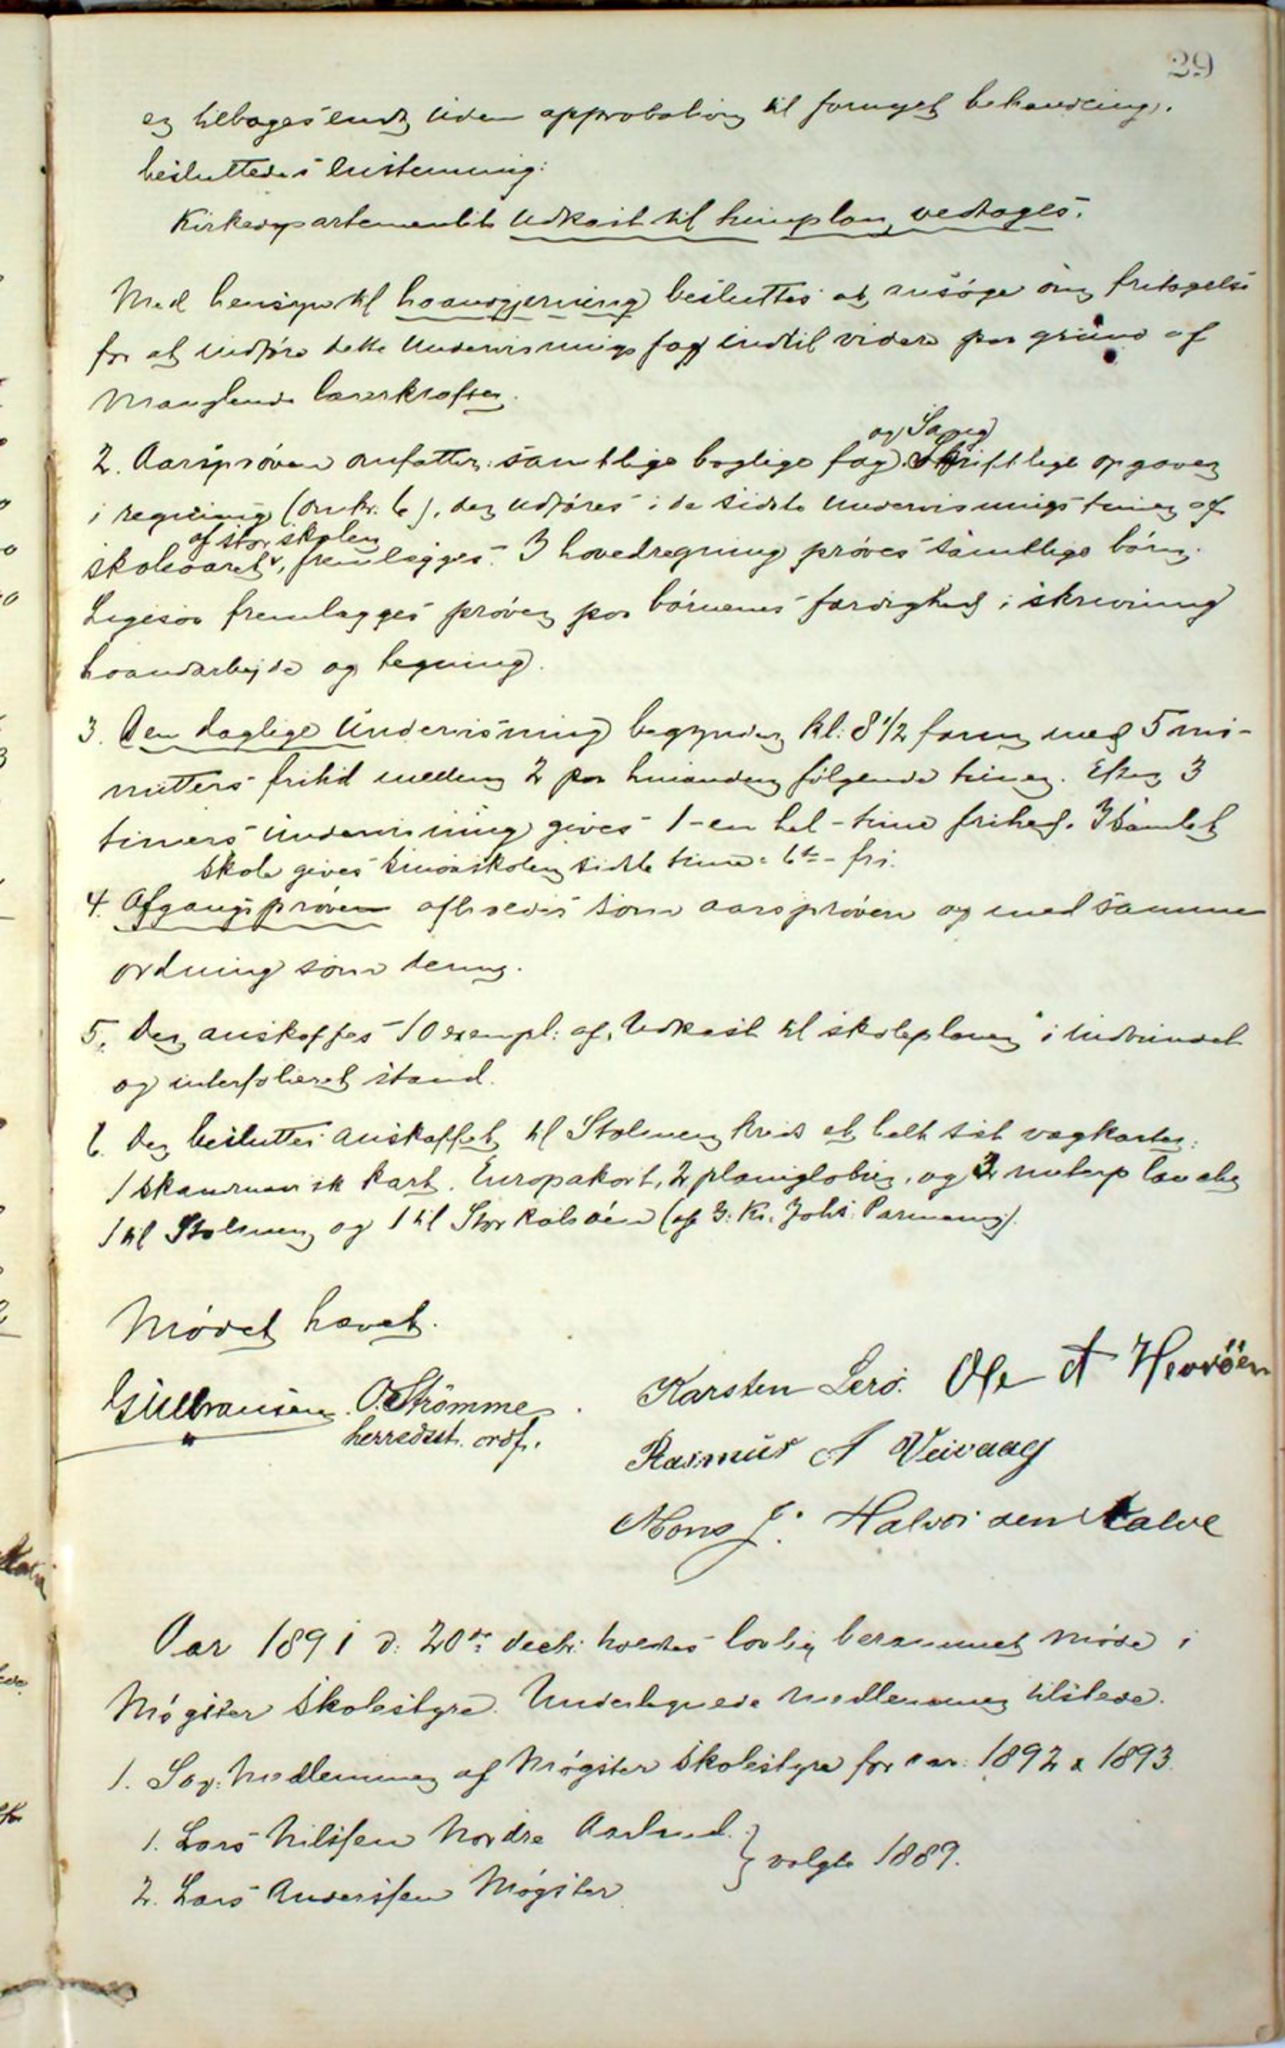 29
er tilbagesendt uden approbation til fornyet behandling,
besluttedes enstemmig:
Kirkedepartementets Udkast til timeplan vedtages.
Med hensyn til haandgjerning besluttes at ansøge om fritagelse
for at indføre dette Undervisningsfag indtil videre paa grund af
Manglende lærerkrafter.
og Sang
2. Aarsprøven omfatter: samtlige boglige fag. Skriftlige opgaver
i regning (omkr. 6), der udføres i de sidste undervisningstimer af
af storskolen
skoleaaret, fremlægges. I hovedregning prøves samtlige børn.
Ligesaa fremlægges prøver paa børnenes færdighed i skrivning
haandarbejde og tegning.
3. Den daglige Undervisning begynder kl. 8 1/2 form. med 5 mi-
nutters fritid mellem 2 paa hinanden følgende timer. Efter 3
timers undervisning gives 1 - en hel - time frihed. I samlet
skole gives smaaskolen sidste time - 6te - fri.
4. Afgangsprøven afholdes som aarsprøven og med samme
ordning som denne.
5. Der anskaffes 10 exempl. af "Udkast til skoleplanen" i indbundet
og interfolieret stand.
6. Der besluttes anskaffet til Stolmen kreds et helt sæt vægkarter:
1 skandinavisk kart. Europakart, 2 planiglober, og 2 naturp tavler
1 til Stolmen og 1 til Storkalsøen (af J. Kr. Johs. Parmann).
Mødet hævet.
Gulbransen. O. Strömme
herredsst. ordf.
Karsten Lerö. Ole A Hevröen
Rasmus A Veivaag
Mons J. Halvorsen Kalve
Aar 1891 d. 20de decbr. holdtes lovlig berammet Møde i
Møgster Skolestyre. Undertegnede medlemmer tilstede.
1. Som Medlemmer af Møgster Skolestyre for aar 1892 & 1893
1. Lars Nilssen Nordre Aarland.
2. Lars Anderssen Møgster
} valgte 1889.